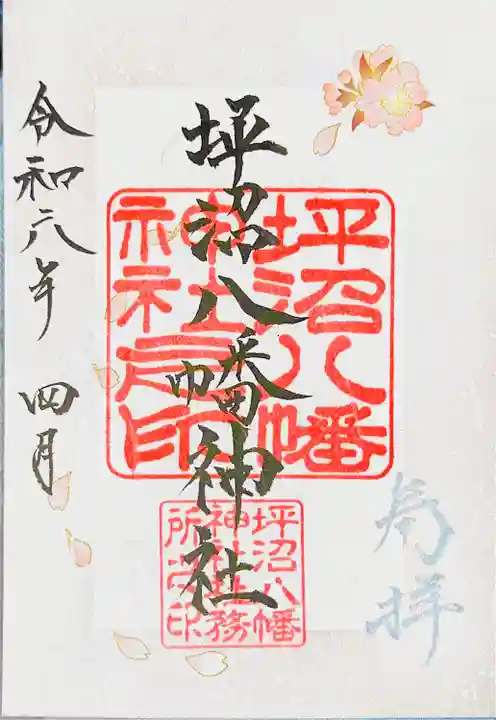 奉拝
坪沼八幡神社
令和六年 四月
坪沼八幡
神社之印
坪沼八幡
神社社務
所之印